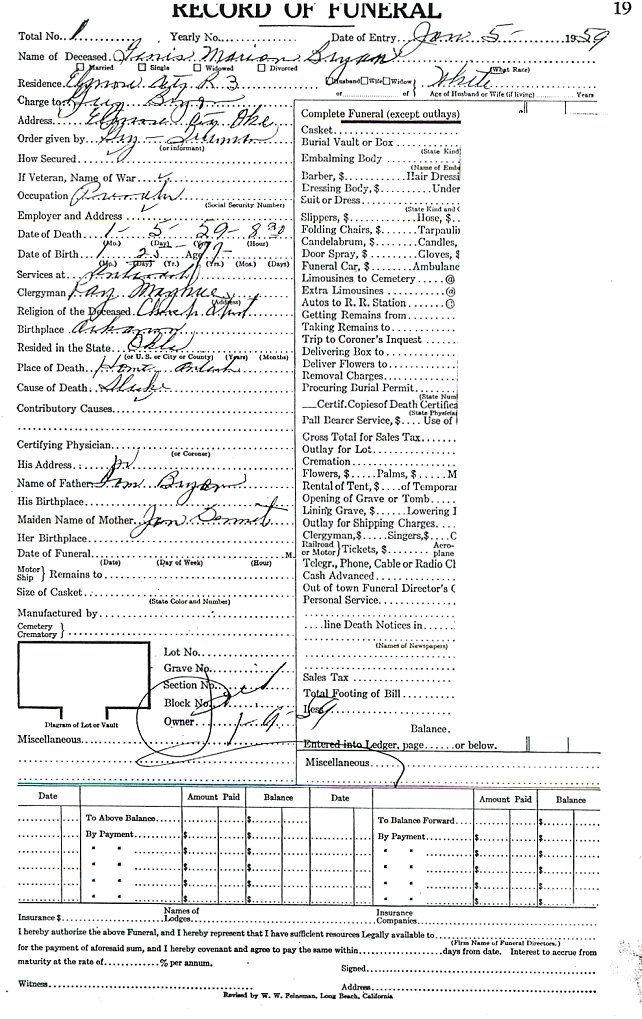 RECORD OF FUNERAL 19
Total No. 1 Yearly No. Date of Entry Jan 5- 1959
Name of Deceased Marion Bryan
Married Single Widowed Divorced (What Race)
Residence City R 3 Husband Wife Widow White
or of Age of Husband or Wife (if living) Years
Charge to
Address City Okla
Order given by
(or informant)
How Secured
If Veteran, Name of War
Occupation
(Social Security Number)
Employer and Address
Date of Death 1- 5- 59- 8 30
(Mo.) (Day) (Yr.) (Hour)
Date of Birth Age
(Mo.) (Day) (Yr.) (Yrs.) (Mos.) (Days)
Services at
Clergyman Ray
(Address)
Religion of the Deceased Church
Birthplace Arkansas
Resided in the State Okla
(or U. S. or City or County) (Years) (Months)
Place of Death Home
Cause of Death
Contributory Causes
Certifying Physician
(or Coroner)
His Address
Name of Father Bryan
His Birthplace
Maiden Name of Mother Jan
Her Birthplace
Date of Funeral M.
(Date) (Day of Week) (Hour)
Motor Ship } Remains to
Size of Casket
(State Color and Number)
Manufactured by
Cemetery Crematory }
Lot No.
Grave No.
Section No.
Block No.
Owner
Diagram of Lot or Vault
Miscellaneous
Complete Funeral (except outlays)
Casket
Burial Vault or Box
(State Kind
Embalming Body
(Name of Emb
Barber, $ Hair Dressi
Dressing Body, $ Under
Suit or Dress
(State Kind and C
Slippers, $ Hose, $
Folding Chairs, $ Tarpauli
Candelabrum, $ Candles,
Door Spray, $ Gloves, $
Funeral Car, $ Ambulanc
Limousines to Cemetery @
Extra Limousines @
Autos to R. R. Station @
Getting Remains from
Taking Remains to
Trip to Coroner's Inquest
Delivering Box to
Deliver Flowers to
Removal Charges
Procuring Burial Permit
(State Num
Certif. Copies of Death Certifica
(State Physicia
Pall Bearer Service, $ Use of
Gross Total for Sales Tax
Outlay for Lot
Cremation
Flowers, $ Palms, $ M
Rental of Tent, $ of Temporar
Opening of Grave or Tomb
Lining Grave, $ Lowering
Outlay for Shipping Charges
Clergyman, $ Singers, $ C
Railroad or Motor } Tickets, $ Aero-plane
Telegr., Phone, Cable or Radio Cl
Cash Advanced
Out of town Funeral Director's C
Personal Service
line Death Notices in
(Names of Newspapers)
Sales Tax
Total Footing of Bill
Less
Balance
Entered into Ledger, page or below.
Miscellaneous
Date Amount Paid Balance Date Amount Paid Balance
To Above Balance $ To Balance Forward $
By Payment $ $ By Payment $ $
" " $ $ " " $ $
" " $ $ " " $ $
" " $ $ " " $ $
" " $ $ " " $ $
Insurance $ Names of Lodges Insurance Companies
I hereby authorize the above Funeral, and I hereby represent that I have sufficient resources Legally available to
(Firm Name of Funeral Directors.)
for the payment of aforesaid sum, and I hereby covenant and agree to pay the same within days from date. Interest to accrue from
maturity at the rate of % per annum.
Signed
Witness Address
Revised by W. W. Feineman, Long Beach, California